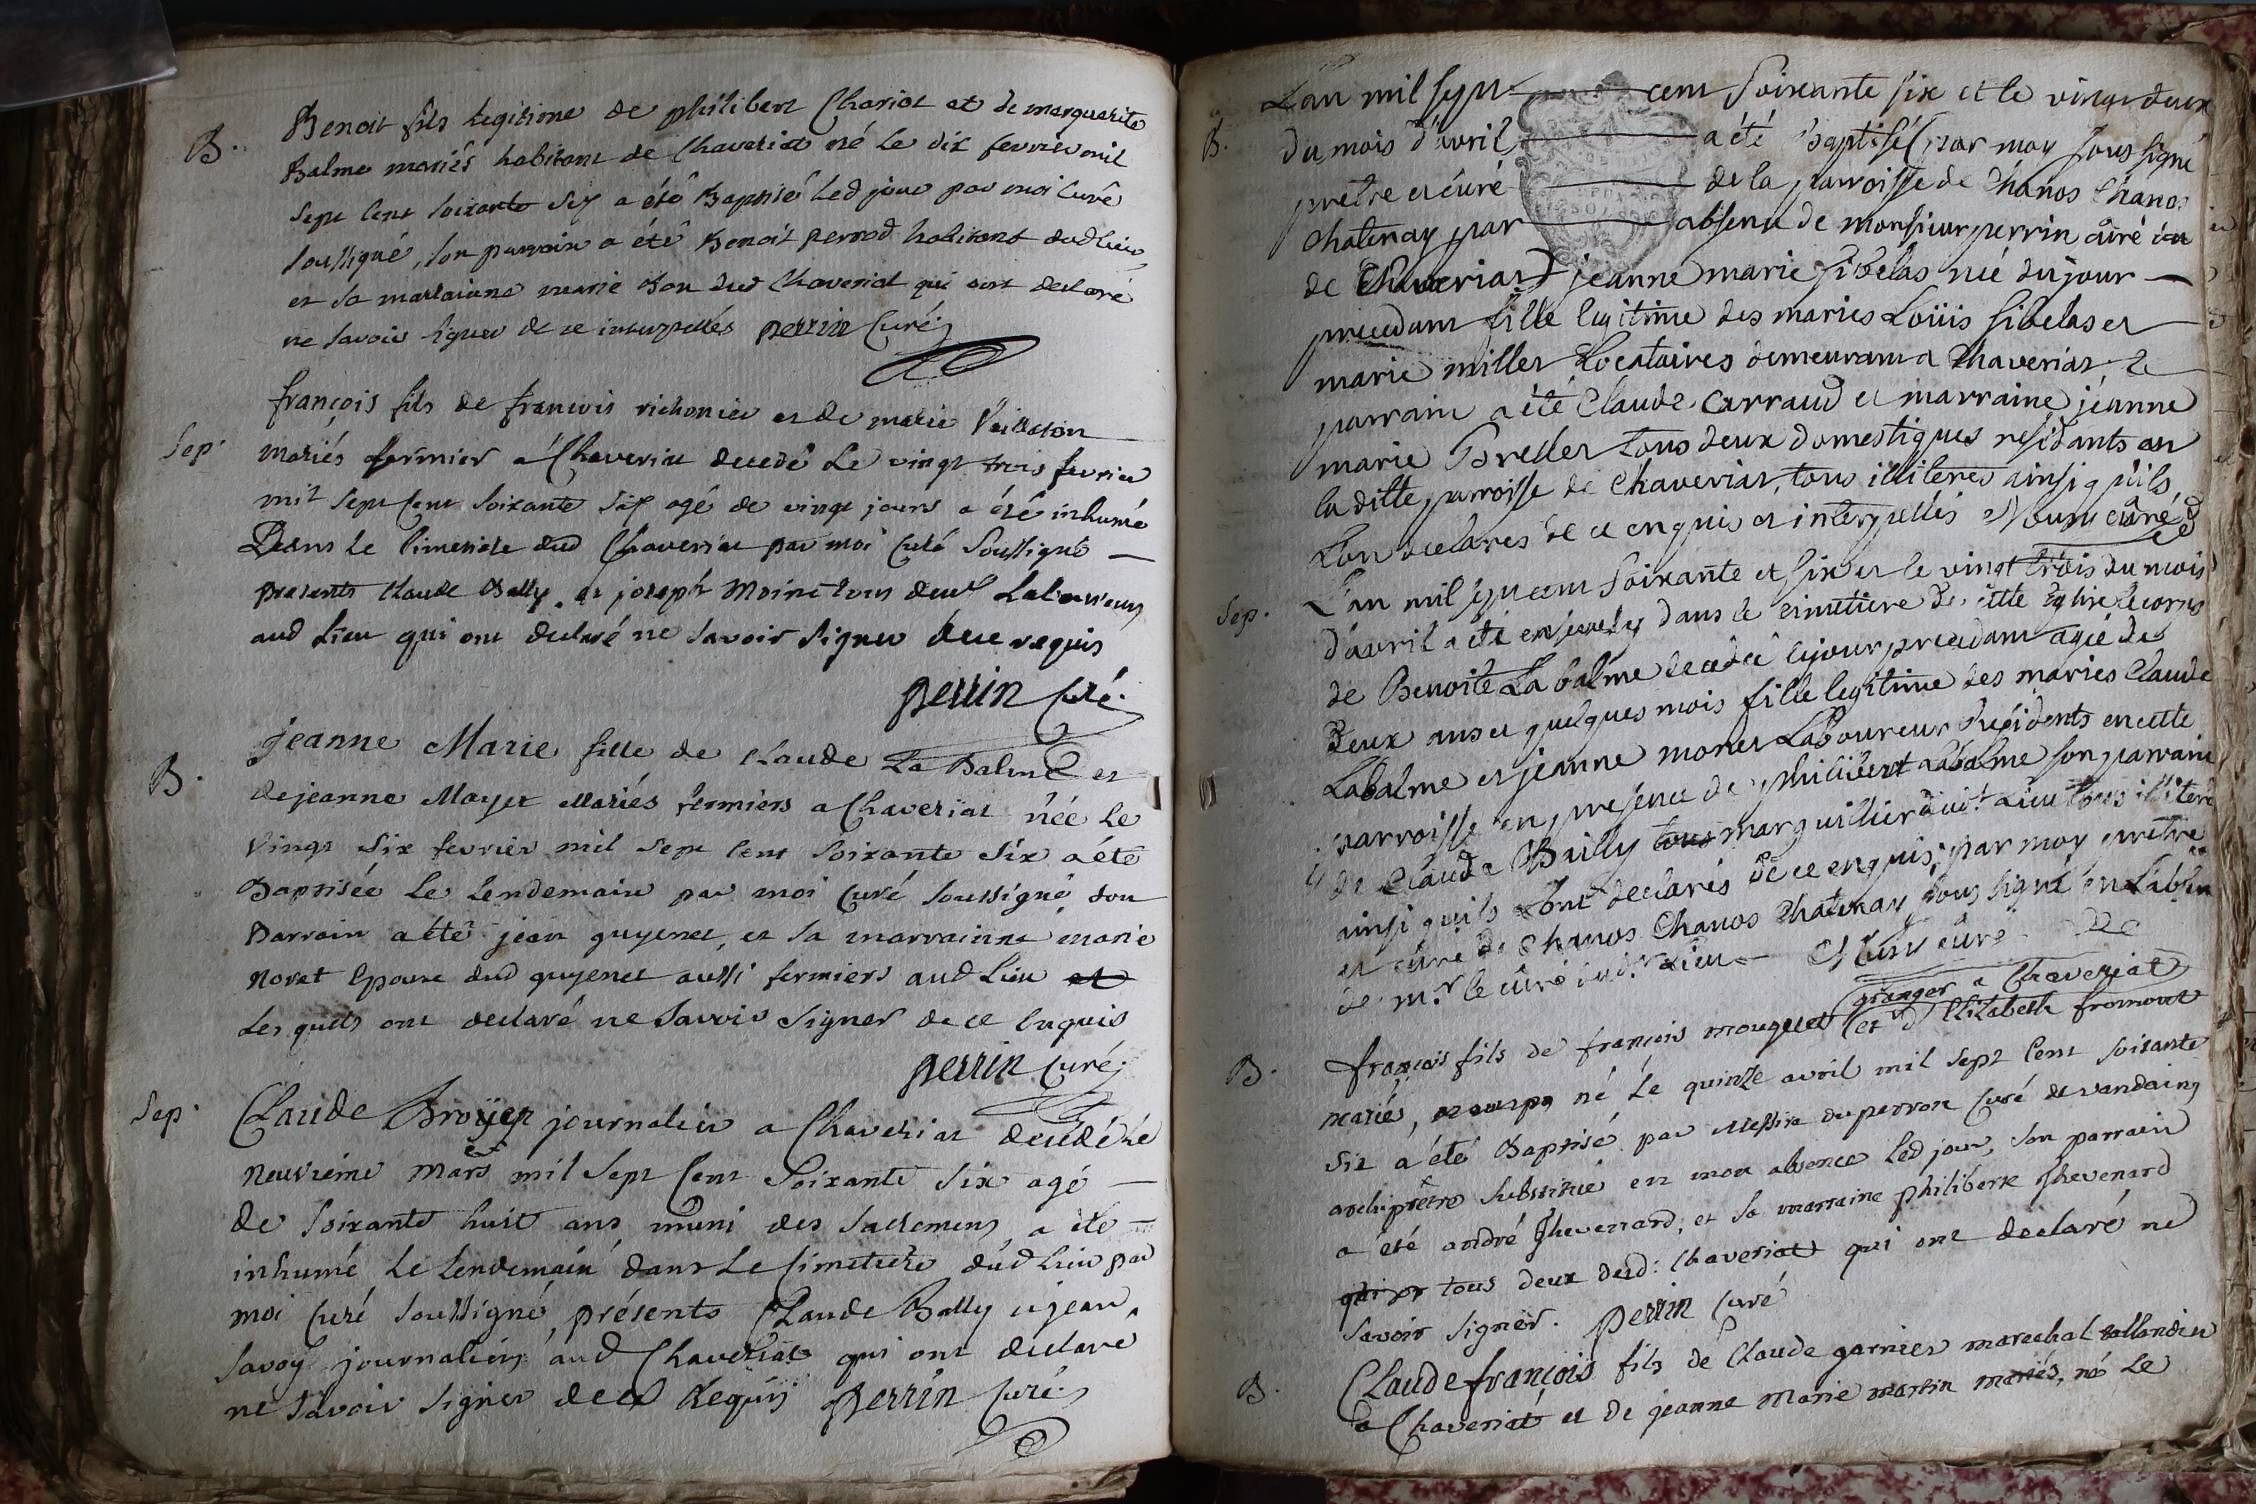 B. Benoit fils legitime de philibert Chariat et de marguerite
Balme mariés habitant de Chaveriat né le dix fevrier mil
sept cent soixante six a été Baptisé led jour par moi Curé
soussigné, son parrain a été Benoit perrod habitant dud lieu,
et sa marraine marie Bon dud Chaveriat qui ont declaré
ne savoir signer de ce interpellés perrin Curé
Sep. françois fils de francois richonier et de marie
mariés fermier a Chaveriat decedé le vingt trois fevrier
mil sept cent soixante six agé de vingt jours a été inhumé
Dans le Cimetiere dud Chaveriat par moi Curé soussigné
presents Claude Bally et joseph Moine tous deux Laboureurs
aud Lieu qui ont declaré ne savoir signer de ce requis
perrin Curé
B. jeanne Marie fille de Claude La Balme et
de jeanne Moyet Mariés fermiers a Chaveriat née le
vingt six fevrier mil sept cent soixante six a été
Baptisée le Lendemain par moi Curé soussigné son
Parrain a été jean guyenet, et sa marrainne marie
noret Epouse dud guyenet aussi fermiers aud Lieu et
Lesquels ont declaré ne savoir signer de ce enquis
perrin Curé
Sep. Claude Broyer journalier a Chaveriat decédé le
neuvieme mars mil sept Cent Soixante Six agé
de soixante huit ans muni des sacremens a été
inhumé le lendemain dans le Cimetiere dud lieu par
moi Curé soussigné, présents Claude Bally et jean
Savoy journaliers aud Chaveriat qui ont declaré
ne savoir signer de ce Requis perrin Curé
B. L'an mil sept cent soixante six et le vingt deux
du mois d'avril a été Baptisé par moy soussigné
pretre et curé de la parroisse de Chanos Chanos
Chatenay par absence de monsieur perrin curé
de Chaveriat jeanne marie sibelas née du jour
precedant fille legitime des maries Loüis sibelas et
marie millet Locataires demeurant a Chaveriat le
parrain a été Claude Carraud et marraine jeanne
marie Bredet tous deux domestiques residants en
la ditte parroisse de Chaveriat, tous illiteres ainsi qu'ils
L'on declarés de ce enquis et interpellés curé
Sep. L'an mil sept cent soixante et six et le vingt trois du mois
d'avril a été enseuely dans le cimetiere de cette Eglise le corps
de Benoite La balme decedée le jour precedant agée de
Deux ans et quelques mois fille legitime des maries Claude
Labalme et jeanne mones Laboureur Residents en cette
parroisse en presence de philibert Labalme son parrain
et de Claude Bailly tous marguillier dud.t Lieu tous illiteré
ainsi quils L'ont declarés de ce enquis, par moy pretre
et curé de Chanos Chanos Chatenay sous signé en L'absence
de m.r le curé dud.t Lieu curé
granger a Chaveriat
B. françois fils de francois mouquet et d' Elizabeth fromont
mariés, né le quinze avril mil sept Cent soixante
six a été Baptisé par Messire duperron Curé de vandeins
archiprêtre substitué en mon absence led jour, son parrain
a été andré Thevenard, et sa marraine philiberte Thevenard
tous deux dud: Chaveriat qui ont declaré ne
savoir signer. perrin Curé
B. Claude françois fils de Claude garnier marechal taillandier
a Chaveriat et de jeanne Marie martin mariés, né le